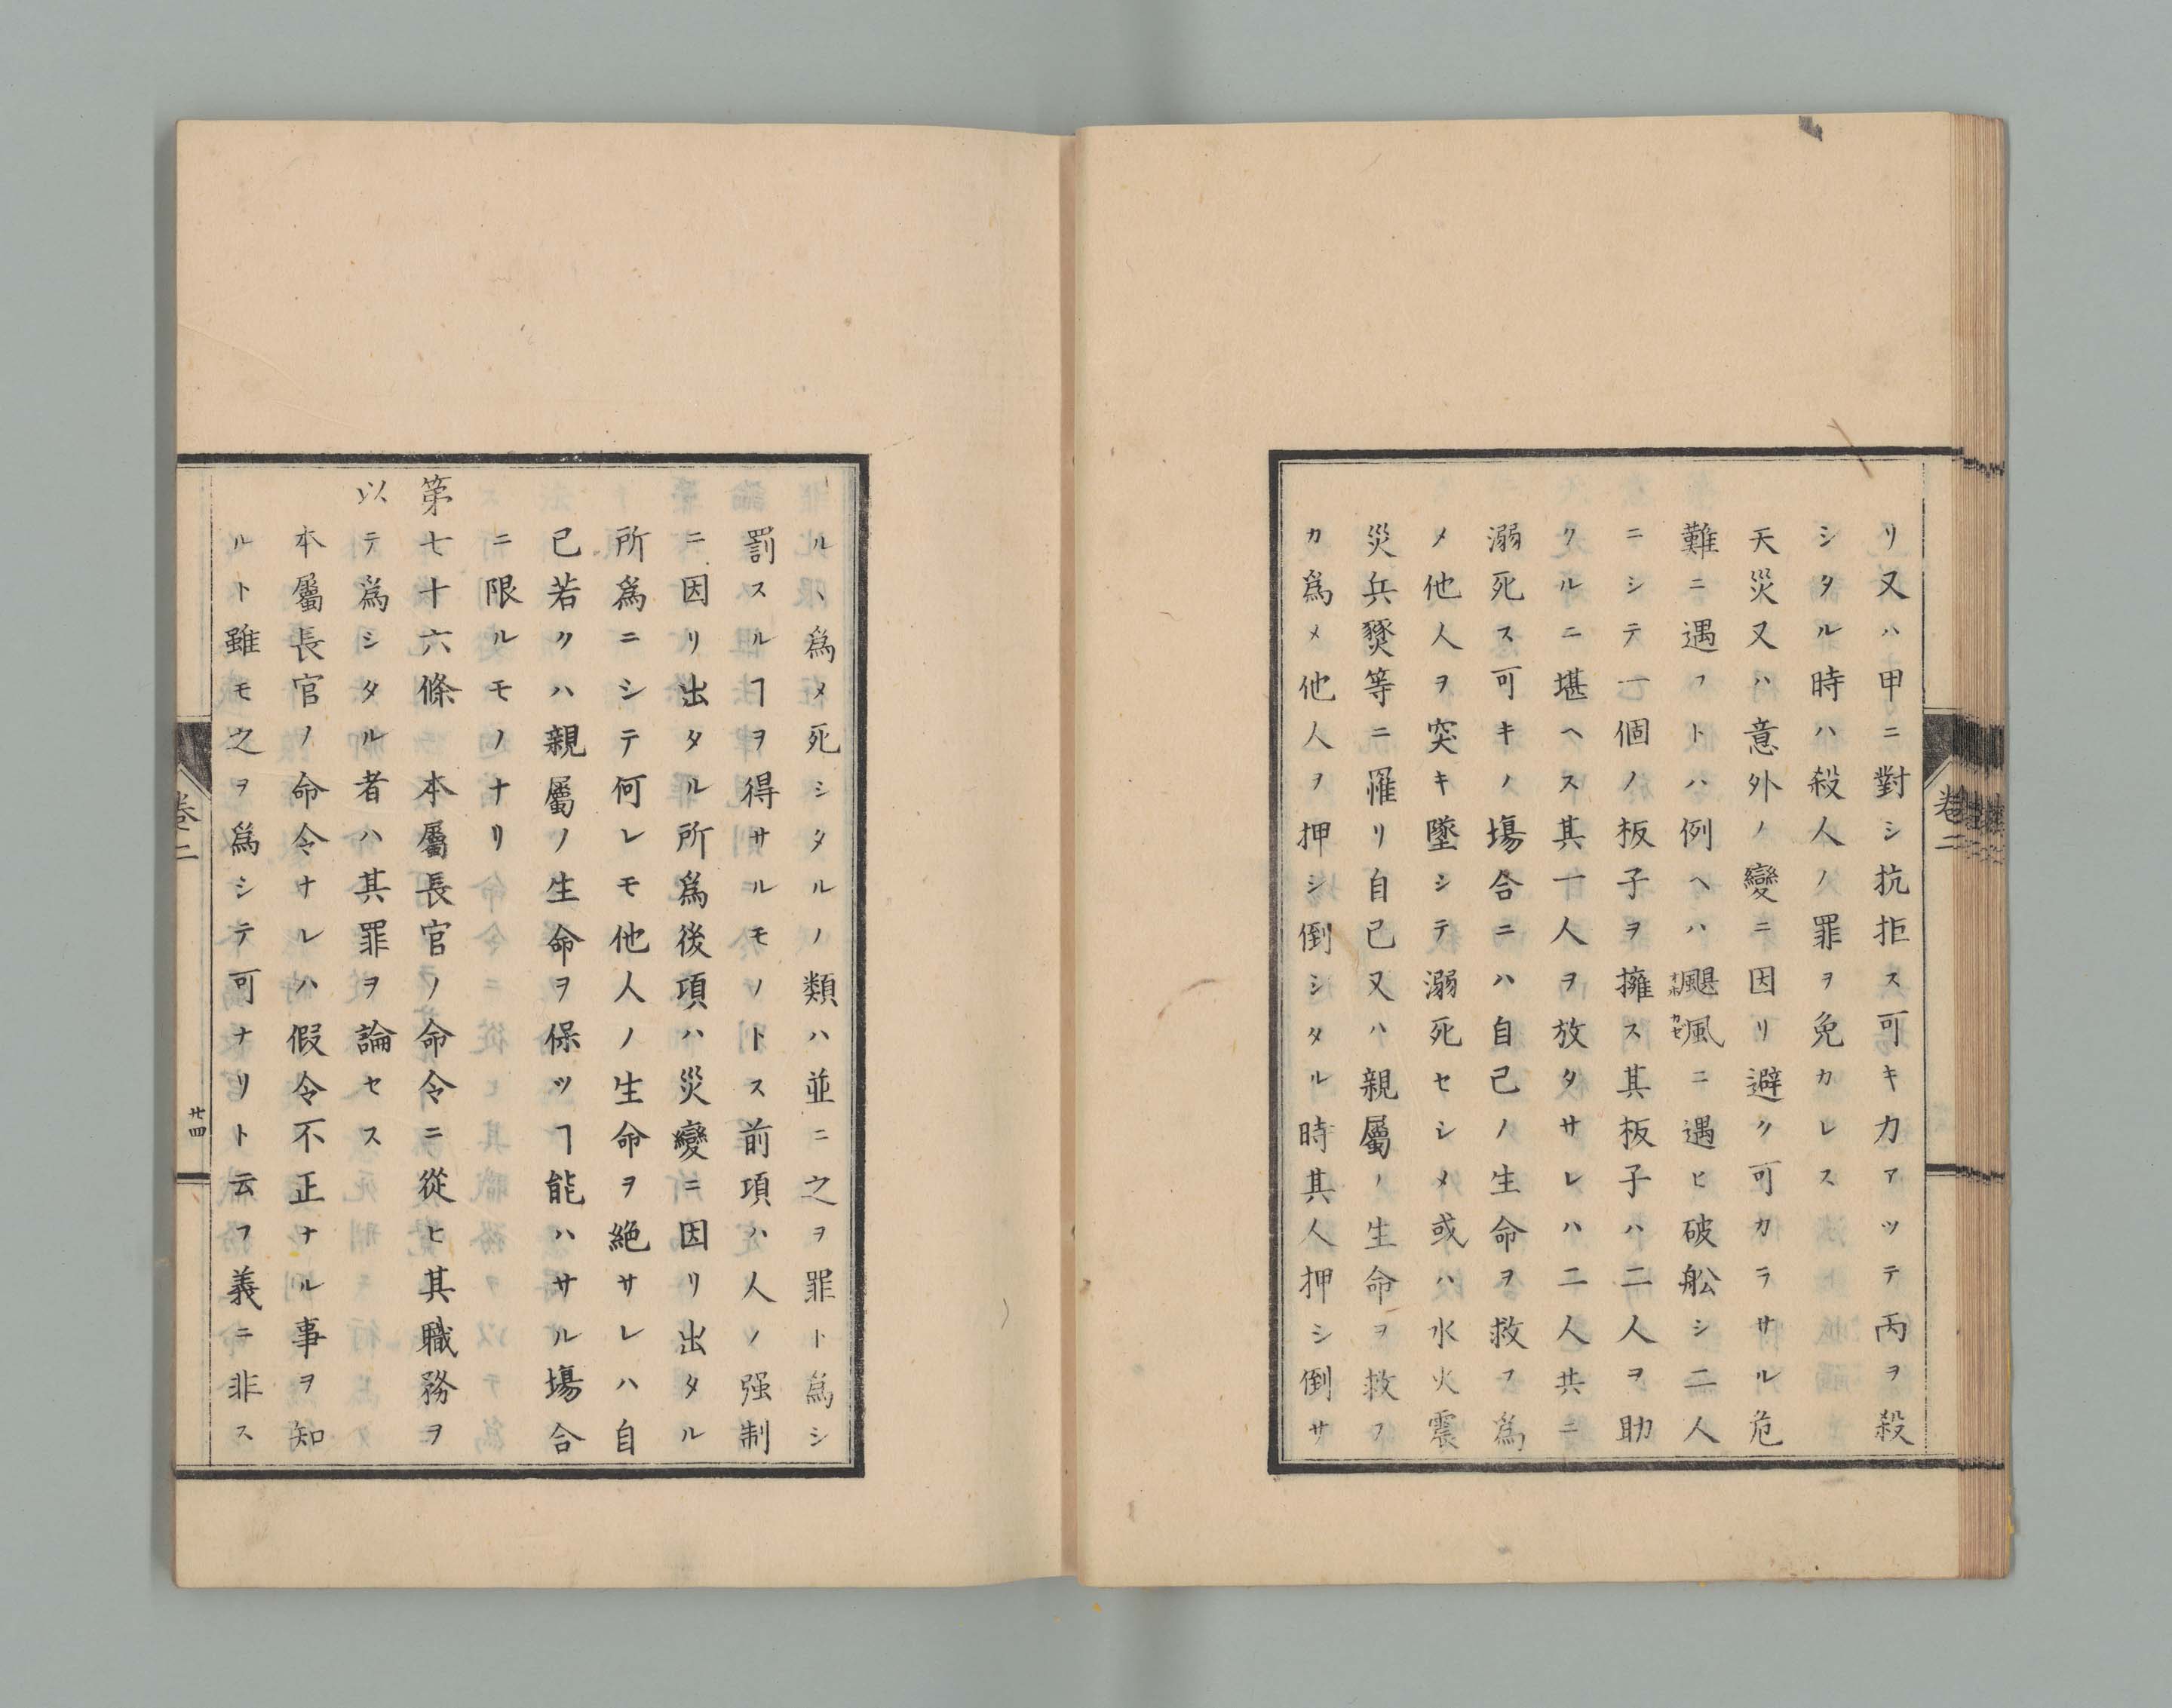 リ又ハ甲ニ對シ抗拒ス可キ力アツテ丙ヲ殺
シタル時ハ殺人ノ罪ヲ免カレス
天災又ハ意外ノ變ニ因リ避ク可カラサル危
難ニ遇フトハ例ヘハ颶風ニ遇ヒ破舩シ二人
ニシテ一個ノ板子ヲ擁ス其板子ハ二人ヲ助
クルニ堪ヘス其一人ヲ放タサレハ二人共ニ
溺死ス可キノ塲合ニハ自己ノ生命ヲ救フ爲
メ他人ヲ突キ墜シテ溺死セシメ或ハ水火震
災兵燹等ニ罹リ自已又ハ親屬ノ生命ヲ救フ
カ爲メ他人ヲ押シ倒シタル時其人押シ倒サ
卷二
ルヽ爲メ死シタルノ類ハ並ニ之ヲ罪ト爲シ
罰スルヿヲ得サルモノトス前項ハ人ノ强制
ニ因リ出タル所爲後項ハ災變ニ因リ出タル
所爲ニシテ何レモ他人ノ生命ヲ絶サレハ自
已若クハ親屬ノ生命ヲ保ツヿ能ハサル塲合
ニ限ルモノナリ
第七十六條 本屬長官ノ命令ニ從ヒ其職務ヲ
以テ爲シタル者ハ其罪ヲ論セス
本屬長官ノ命令ナルレハ假令不正ナル事ヲ知
ルト雖モ之ヲ爲シテ可ナリト云フ義ニ非ス
卷二
廿四